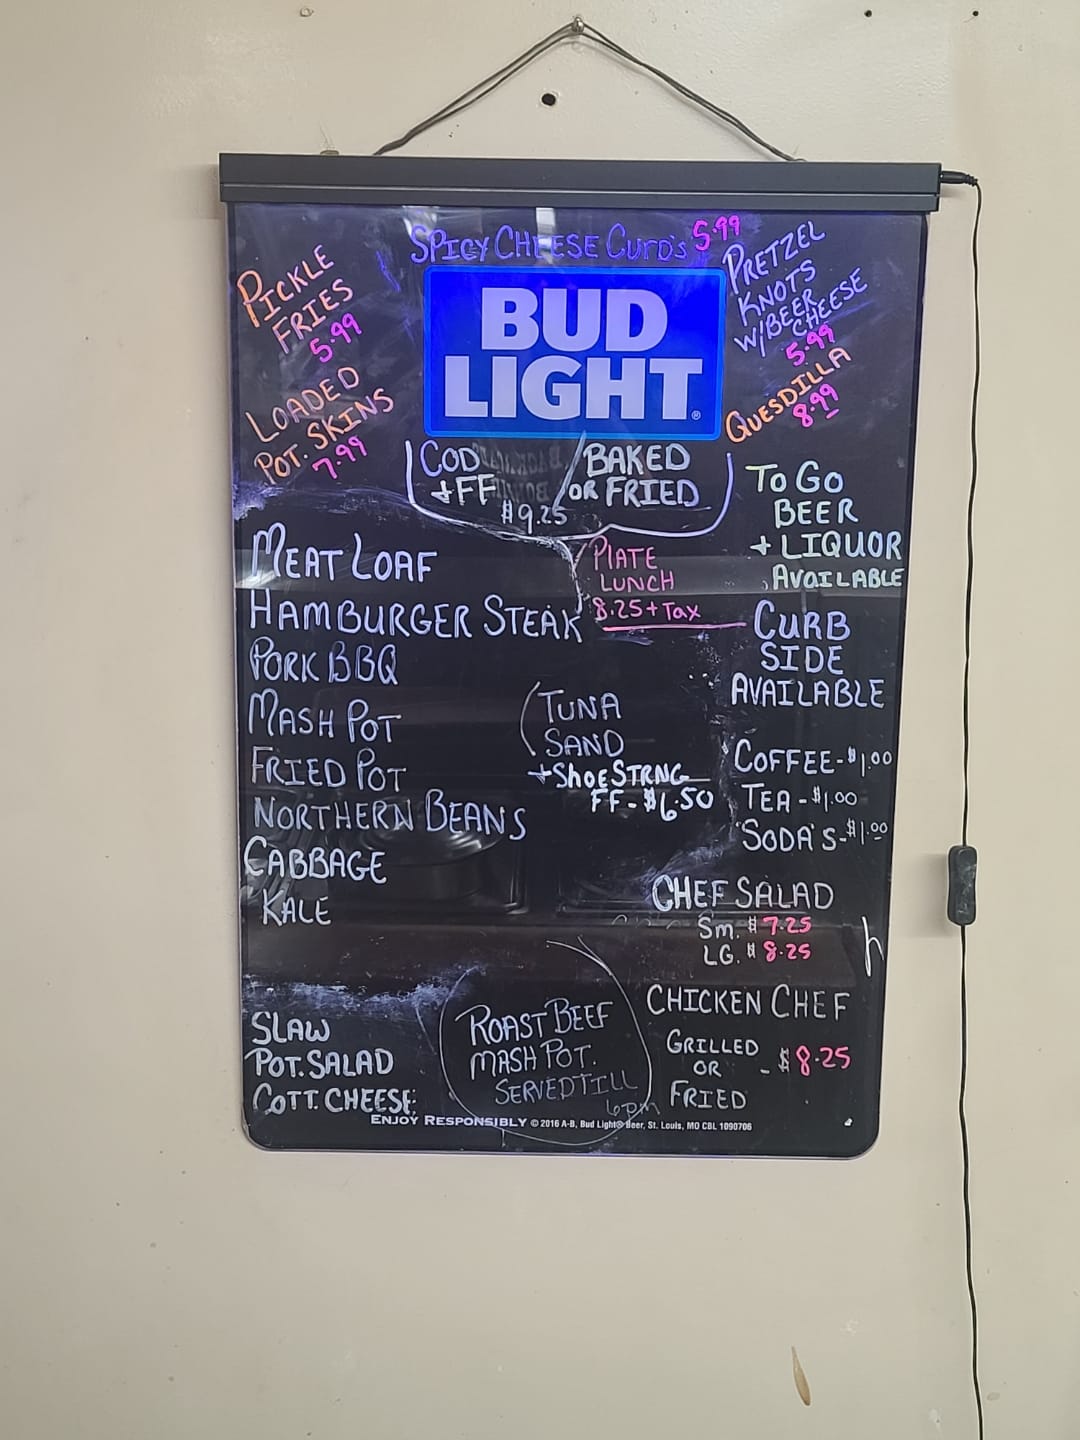 SPICY CHEESE CURD'S 5.99
PICKLE
FRIES
5.99
LOADED
POT. SKINS
7.99
BUD
LIGHT
PRETZEL
KNOTS
W/BEER
CHEESE
5.99
QUESDILLA
8.99
COD
+ FF
$9.25
BAKED
OR FRIED
TO GO
BEER
+ LIQUOR
AVAILABLE
MEAT LOAF
HAMBURGER STEAK
PORK BBQ
MASH POT
FRIED POT
NORTHERN BEANS
CABBAGE
KALE
PLATE
LUNCH
8.25 + Tax
CURB
SIDE
AVAILABLE
TUNA
SAND
+ SHOESTRNG
FF - $6.50
COFFEE - $1.00
TEA - $1.00
SODA'S - $1.00
CHEF SALAD
Sm. $7.25
LG. $8.25
h
SLAW
POT. SALAD
COTT. CHEESE
ROAST BEEF
MASH POT.
SERVED TILL
6pm
CHICKEN CHEF
GRILLED
OR
FRIED
- $8.25
ENJOY RESPONSIBLY © 2016 A-B, Bud Light® Beer, St. Louis, MO CBL 1090706